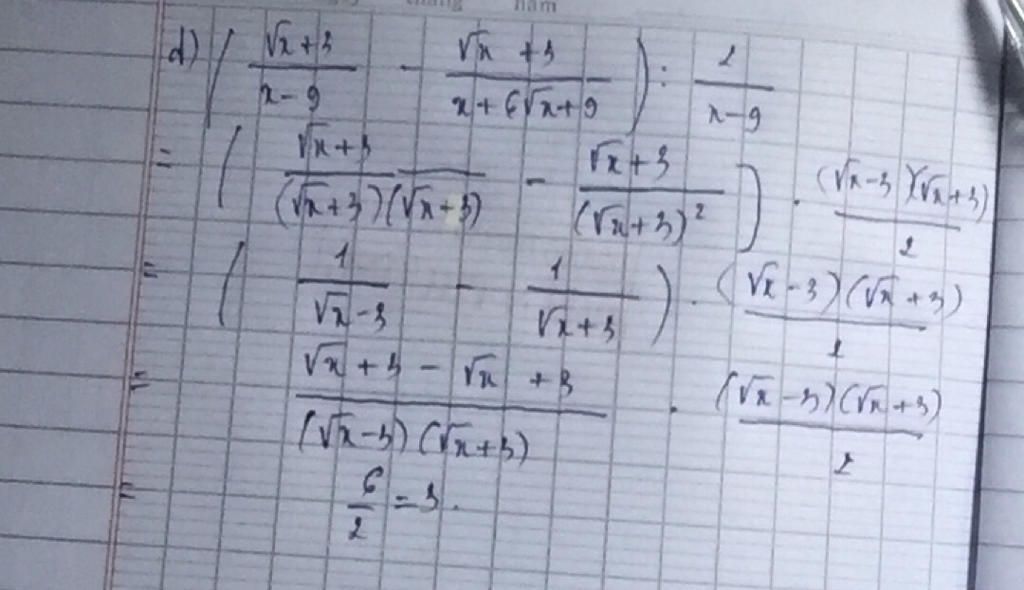 tháng năm
d) ( (√x + 3)/(x - 9) - (√x + 3)/(x + 6√x + 9) ) : 2/(x - 9)
= ( (√x + 3)/((√x + 3)(√x - 3)) - (√x + 3)/((√x + 3)²) ) . ((√x - 3)(√x + 3))/2
= ( 1/(√x - 3) - 1/(√x + 3) ) . ((√x - 3)(√x + 3))/2
= (√x + 3 - √x + 3)/((√x - 3)(√x + 3)) . ((√x - 3)(√x + 3))/2
= 6/2 = 3.